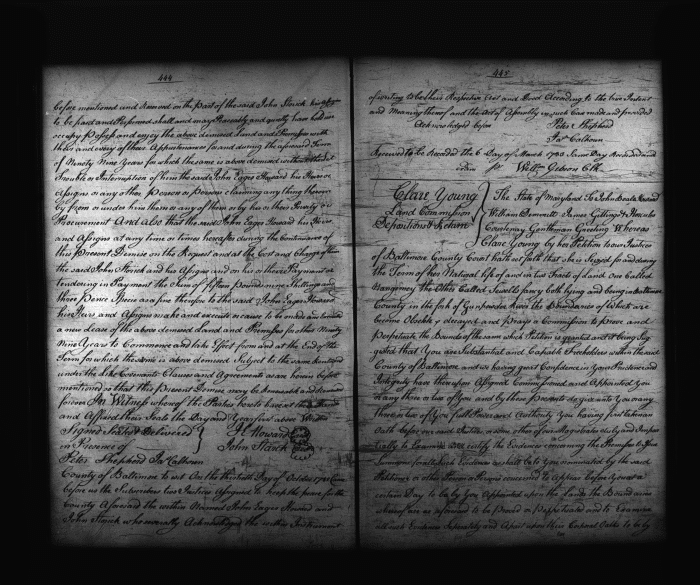 444
before mentioned and Reserved on the Part of the said John Sterck his Assigns
to be paid and Performed shall and may Peaceably and quietly have hold use
occupy Possess and enjoy the above demised Land and Premises with
their and every of their Appurtenances for and during the aforesaid Term
of Ninety Nine Years for which the same is above demised without the Let
Trouble or Interruption of him the said John Eager Howard his Heirs or
Assigns or any other Person or Persons claiming any thing therein
by from or under him them or any of them or by his or their Privity or
Procurement And also that the said John Eager Howard his Heirs
and Assigns at any time or times hereafter during the Continuance of
this Present Demise on the Request and at the Cost and Charge of him
the said John Sterck and his Assigns and on his or their Payment or
tendering in Payment the Sum of fifteen Pounds nine Shillings and
three Pence Specie as a fine therefor to the said John Eager Howard
his Heirs and Assigns make and execute or cause to be made and executed
a new Lease of the above demised Land and Premises for other Ninety
Nine Years to Commence and take Effect from and at the End of the
Term for which the same is above demised Subject to the same
under the Like Covenants Clauses and Agreements as are herein before
mentioned so that this Present Demise may be renewable and renewed
forever In Witness whereof the Parties hereto have set their Hands
and Affixed their Seals the Day and Year first above Written
Signed Sealed & Delivered } J E Howard (Seal)
in Presence of John Sterck (Seal)
Peter Shepherd Jas Calhoun
County of Baltimore to wit On the thirtieth Day of October 1782 Came
before us the Subscribers two Justices Assigned to keep the peace for the
County Aforesaid the within Named John Eager Howard and
John Sterck who severally Acknowledged the within Instrument
445
of writing to be their Respective Act and Deed According to the true Intent
and Meaning thereof and the Act of Assembly in such Case made and provided
Acknowledged before Peter Shepherd
Jas Calhoun
Received to be Recorded the 6 Day of March 1783 Same Day Recorded and
Exam Pr Wm Gibson Clk
Clare Young
Land Commission
Depositions & Return
} The State of Maryland To John Beale Howard
William Demmitt James Gittings & Hercules
Courtenay Gentlemen Greeting Whereas
Clare Young by her Petition to our Justices
of Baltimore County Court hath set forth that she is Seized for and during
the Term of her Natural life of and in two Tracts of Land one Called
the Other Called Sewells fancy both lying and being in Baltimore
County in the fork of Gunpowder River the Boundaries of which are
become Obscure & decayed and Prays a Commission to Prove and
Perpetuate the Bounds of the same which Petition is granted and it being Sug
gested that You are Substantial and Capable Freeholders within the said
County of Baltimore and we having great Confidence in Your Prudence and
Integrity have thereupon Assigned Commissioned and Appointed You
or any three or two of You and by these presents do give unto You or any
three or two of You full Power and Authority You having first taken an
Oath before our said Justices or some other of our Magistrates duly and Impar
tially to Examine and certify the Evidences concerning the Premises to You
Summon for all such Evidences as shall be to You nominated by the said
Petitioner or other Person or Persons concerned to appear before You at a
certain Day to be by You Appointed upon the Lands the Boundaries
whereof are as aforesaid to be Proved or Perpetuated and to Examine
all such Evidence Separately and Apart upon their Corporal Oaths to be by